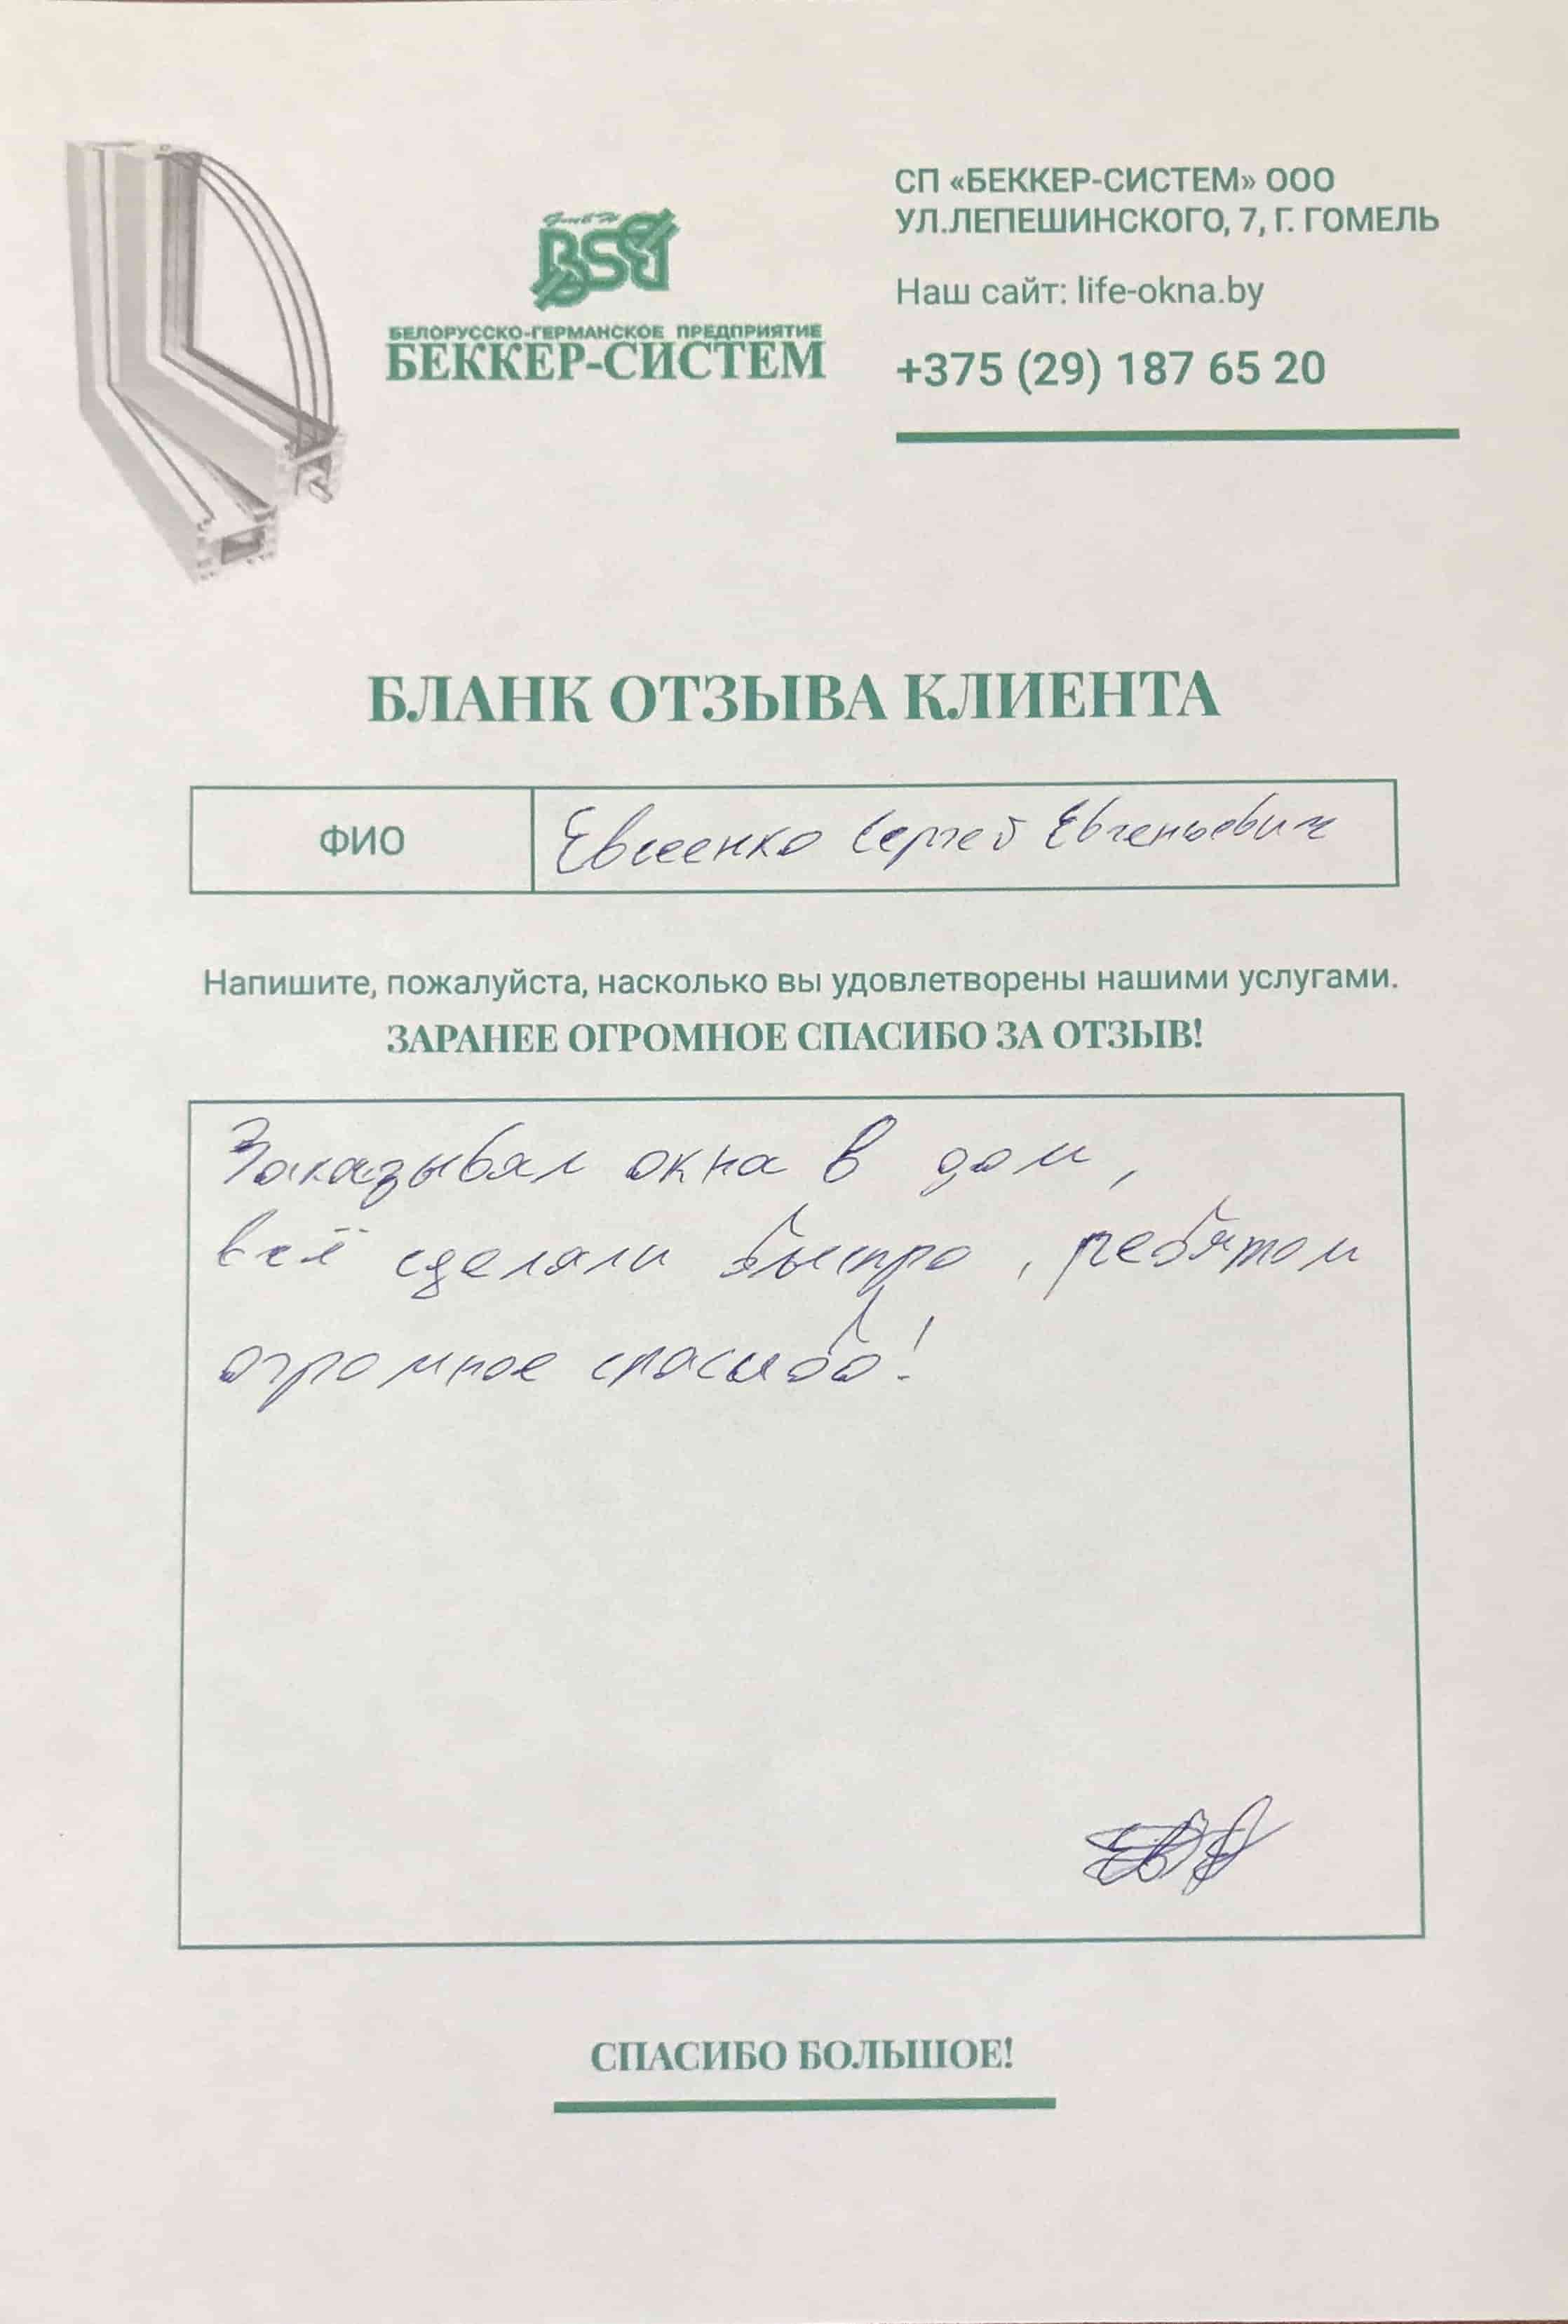 СП «БЕККЕР-СИСТЕМ» ООО
УЛ.ЛЕПЕШИНСКОГО, 7, Г. ГОМЕЛЬ
Наш сайт: life-okna.by
+375 (29) 187 65 20
БЕЛОРУССКО-ГЕРМАНСКОЕ ПРЕДПРИЯТИЕ
БЕККЕР-СИСТЕМ
БЛАНК ОТЗЫВА КЛИЕНТА
ФИО Евсеенко Сергей Евгеньевич
Напишите, пожалуйста, насколько вы удовлетворены нашими услугами.
ЗАРАНЕЕ ОГРОМНОЕ СПАСИБО ЗА ОТЗЫВ!
Заказывал окна в дом,
всё сделали быстро, ребятам
огромное спасибо!
СПАСИБО БОЛЬШОЕ!